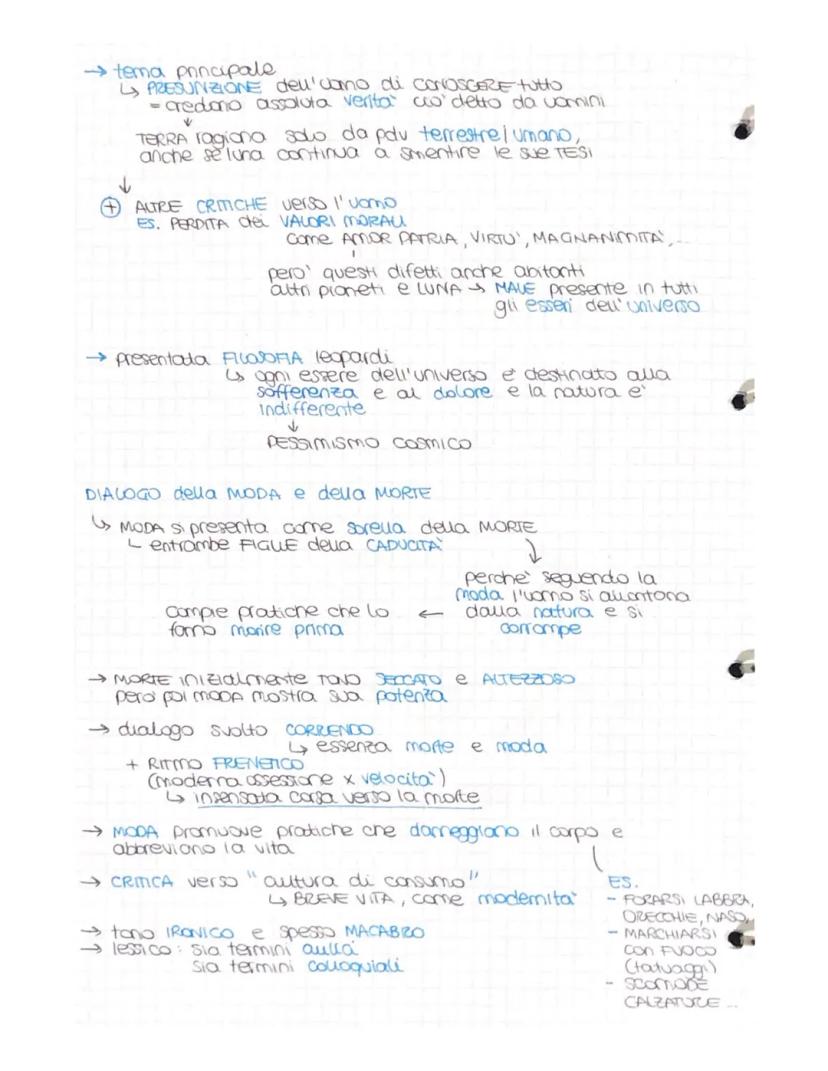 → tema principale
↳ PRESUNZIONE dell'uomo di CONOSCERE tutto
= credono assoluta verità cio' detto da uomini
↓
TERRA ragiona solo da pdv terrestre/umano,
anche se luna continua a smentire le sue TESI
↓
+ ALTRE CRITICHE verso l'uomo
ES. PERDITA dei VALORI MORALI
come AMOR PATRIA, VIRTU', MAGNANIMITA', ...
però questi difetti anche abitanti
altri pianeti e LUNA → MALE presente in tutti
gli esseri dell'universo
→ presentata FILOSOFIA leopardi
↳ ogni essere dell'universo e' destinato alla
sofferenza e al dolore e la natura e'
indifferente
↓
PESSIMISMO COSMICO
DIALOGO della MODA e della MORTE
↳ MODA si presenta come sorella della MORTE
└ entrambe FIGLIE della CADUCITA'
↓
perche' seguendo la
moda l'uomo si allontana
dalla natura e si
corrompe
←
compie pratiche che lo
fanno morire prima
→ MORTE inizialmente TONO SECCATO e ALTEZZOSO
pero' poi MODA mostra sua potenza
→ dialogo svolto CORRENDO
↳ essenza morte e moda
+ RITMO FRENETICO
(moderna ossessione x velocita')
↳ insensata corsa verso la morte
→ MODA promuove pratiche che danneggiano il corpo e
abbreviano la vita
→ CRITICA verso "cultura di consumo"
↳ BREVE VITA, come modernita'
→ tono IRONICO e spesso MACABRO
→ lessico: sia termini aulici
sia termini colloquiali
ES.
- FORARSI LABBRA,
ORECCHIE, NASO,
- MARCHIARSI
CON FUOCO
(tatuaggi)
- SCOMODE
CALZATURE ...